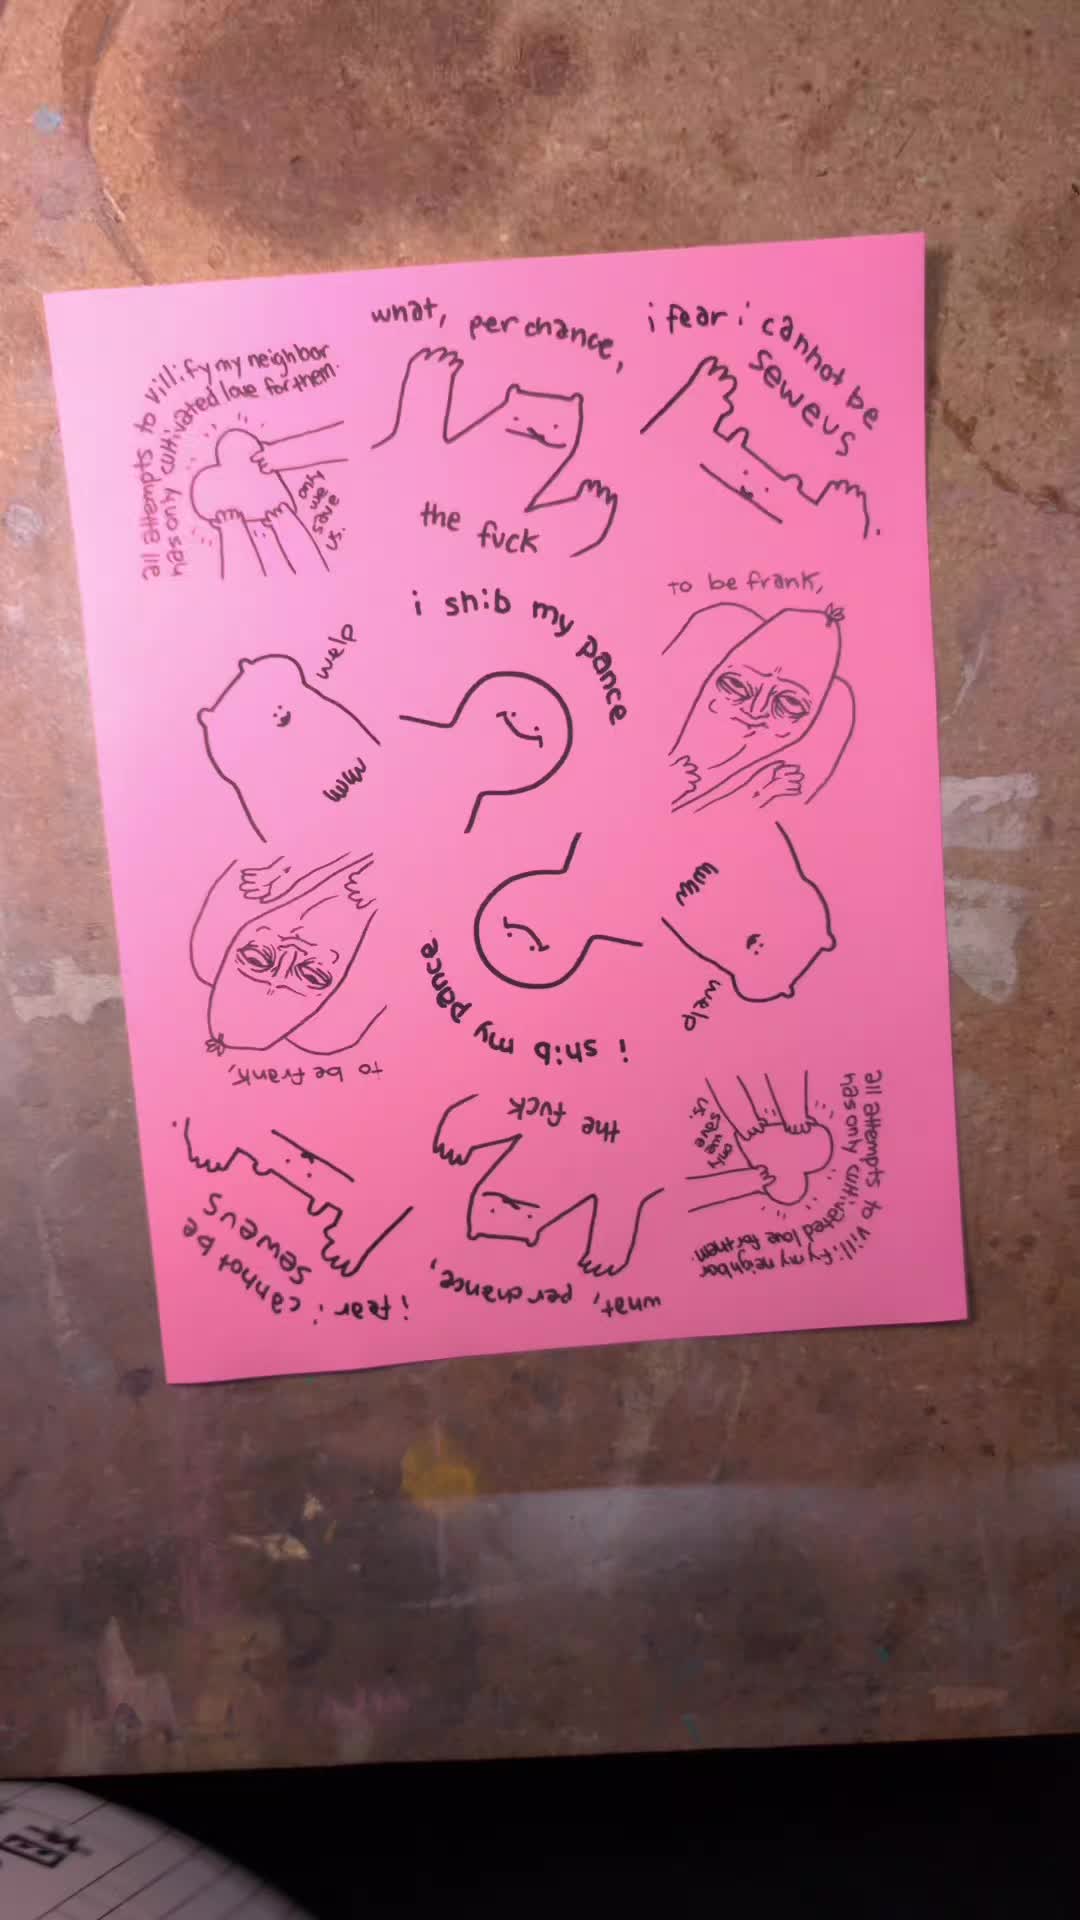 what, perchance,
the fuck
i fear i cannot be
seweus
all attempts to villify my neighbor
has only cultivated love for them.
only we save us.
i shib my pance
to be frank,
welp
welp
to be frank,
i shib my pance
all attempts to villify my neighbor
has only cultivated love for them.
only we save us.
the fuck
what, perchance,
i fear i cannot be
seweus